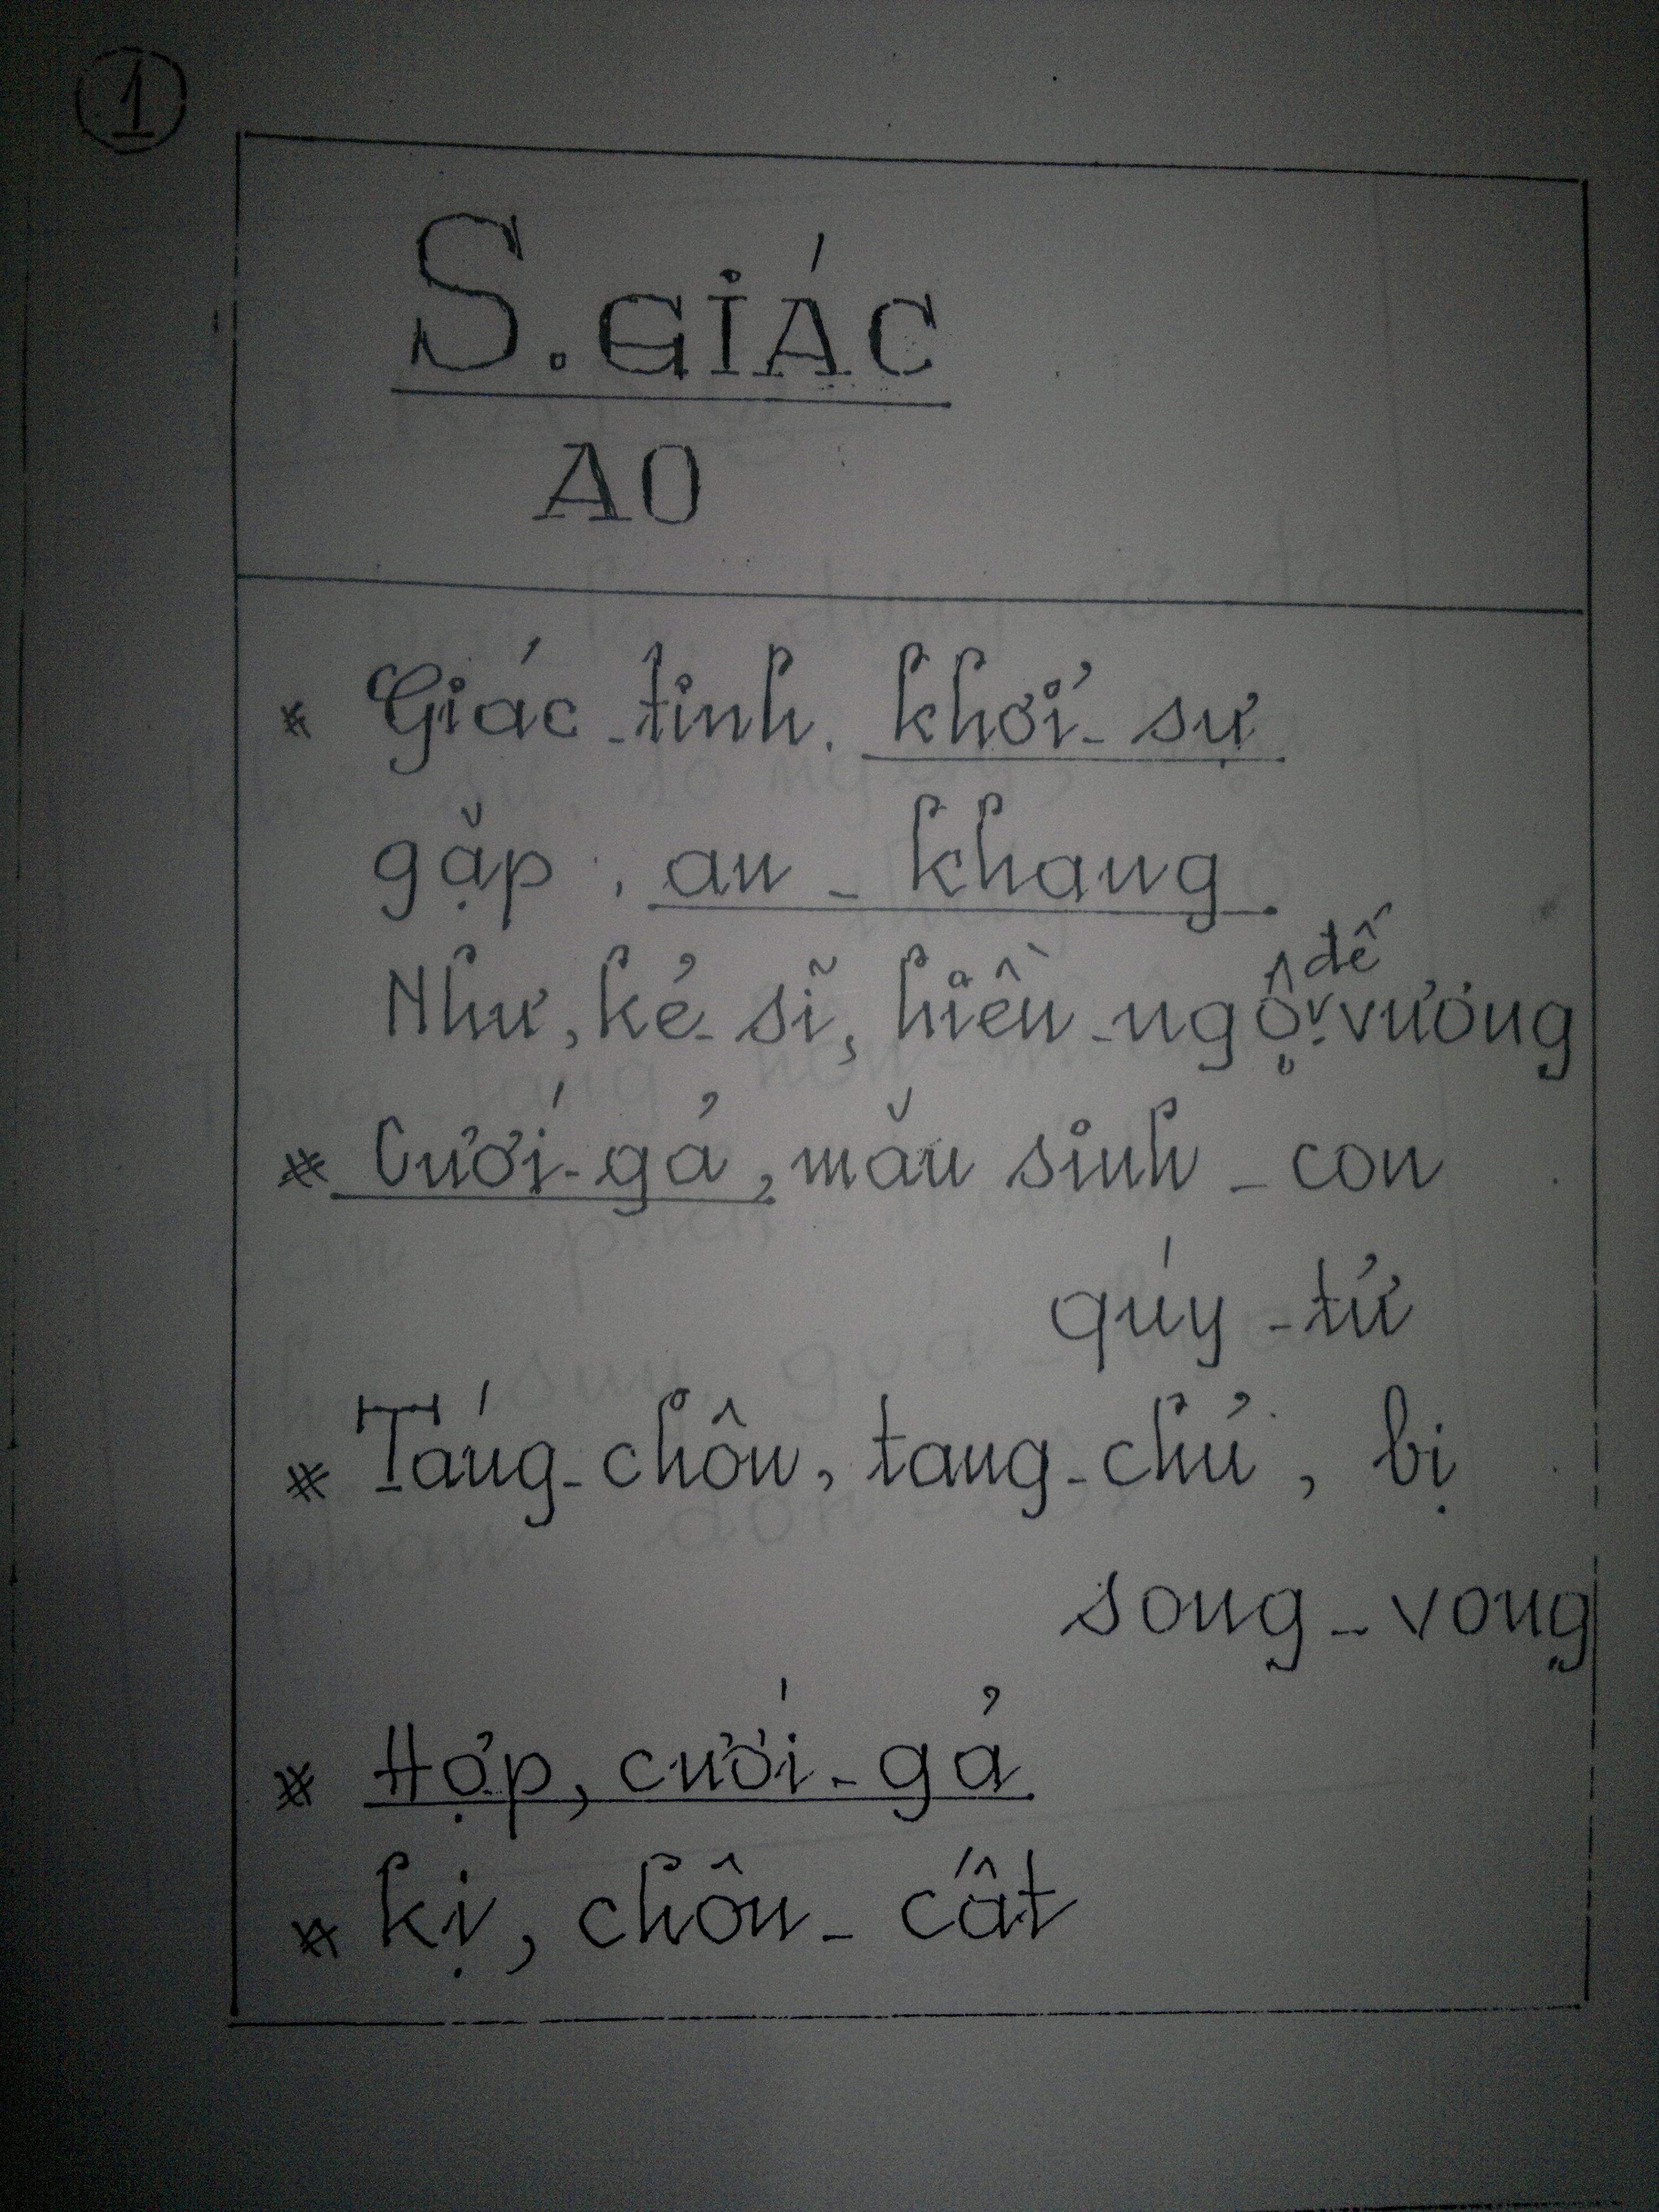 1
S.GIÁC
AO
* Giác-tinh. khởi-sự
gặp, an-khang
Như, kẻ-sĩ, hiền-ngộ đế vương
* Cưới-gả, mău sinh-con
quý-tử
* Táng-chôn, tang-chủ, bị
song-vong
* Hợp, cưới-gả
* kị, chôn-cất